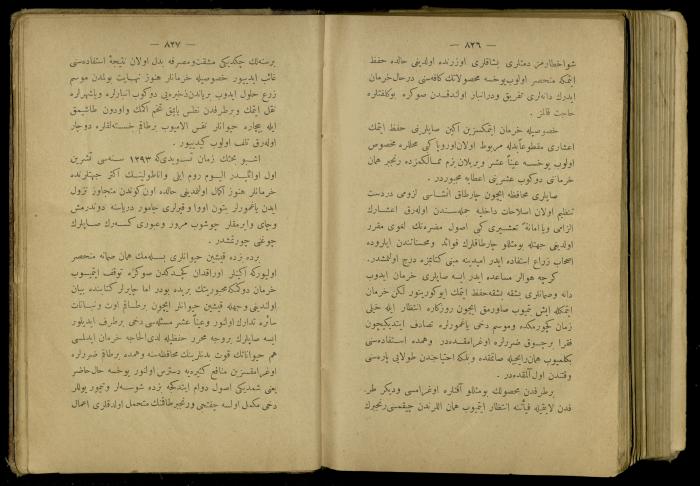 — ٨٢٦ —
شو اخطارمز دمتلری بشاقلری اوزرنده اولدیغی حالده حفظ
ایتمكه منحصر اولوب یوخسه محصولاتك كافه‌سنی درحال خرمان
ایدرك دانه‌لری تفریق و درانبار اولندقدن سوكره بوكلفتلره
حاجت قالمز .
خصوصیله خرمان ایتمكسزین اكین صاپلرینی حفظ ایتمك
اعشاری مقطوعاً بدله مربوط اولان اوروپا كبی محللره مخصوص
اولوب یوخسه عیناً عشر ویریلان بزم ممالكمزده رنجبر همان
خرماننی دوكوب عشرینی اعطایه مجبوردر .
صاپلری محافظه ایچون چارطاق انشاسی لزومی دردست
تنظیم اولان اصلاحات داخلیه جمله‌سندن اوله‌رق اعشارك
الزامی ویا امانةً تعشیری كبی اصول مضره‌نك لغوی مقرر
اولدیغی جهتله بومثللو چارطاقلرك فوائد ومحسناتندن ایلروده
اصحاب زراع استفاده ایدر امیدینه مبنی كتابمزه درج اولنمشدر.
كرچه هوالر مساعده ایدر ایسه صاپلری خرمان ایدوب
دانه وصمانلری بشقه بشقه حفظ ایتمك ایوكورینور لكن خرمان
ایتمكله ایش بتمیوب صاورمق ایچون روزكاره انتظار ایله خیلی
زمان كچورمكده وموسم دخی یاغمورلره تصادف ایتدیكیچون
فقرا برچوق ضررلره اوغرامقده‌در وهمده استفاده‌سنی
بكلمیوب همان رایجیله صاتقده وبلكه احتیاجدن طولایی پاره‌سنی
وقتندن اول آلمقده‌در .
برطرفدن محصولك بومثللو آفتلره اوغرامسی ودیكر طر-
فدن لایقیله فیأتنه انتظار ایتمیوب همان اللرندن چیقمسی رنجبرك
— ٨٢٧ —
برسنه‌لك چكدیكی مشقت ومصرفه بدل اولان نتیجهٔ استفاده‌سنی
غائب ایدییور خصوصیله خرمانلر هنوز نهایت بولمدن موسم
زرع حلول ایدوب بریاندن ذخیره‌یی دوكوب انبارلره ویاشهرلره
نقل ایتمك وبرطرفدن نطس یاپق تخم اكمك واودون طاشیمق
ایله بیچاره حیوانلر نفس آلامیوب برطاقم خسته‌لقلره دوچار
اوله‌رق تلف اولوب كیدییور .
اشبو بحثك زمان تسویدی كه ١٢٩٣ سنه‌سی تشرین
اول اواللیدر الیوم روم ایلی واناطولینك اكثر جهتلرنده
خرمانلر هنوز اكمال اولنمدیغی حالده اون كوندن متجاوز نزول
ایدن یاغمورلر بتون اووا وقیرلری چامور دریاسنه دوندرمش
وچای وایرمقلر جوشوب مرور وعبوری كسه‌رك صاپلرك
چوغنی چورتمشدر .
برده نزده قیشین حیوانلری بسله‌مك همان صمانه منحصر
اولیورکه اكینلر اوراقدن كچدكدن سوكره توقف ایتمیوب
خرمان دوكمكه مجبوریتك بریده بودر اما چایرلر كتابنده بیان
اولندیغی وجهله قیشین حیوانلر ایچون برطاقم اوت ونباتات
سائره تدارك اولنور وعیناً عشر مسئله‌سی دخی برطرف ایدیلور
ایسه صاپلرك بروجه محرر حفظیله لدی‌الحاجه خرمان ایدلسی
هم حیواناتك قوت بدنلرینك محافظه‌سنه وهمده برطاقم ضررلره
اوغرامقسزین منافع كثیره‌یه دسترس اولنور یوخسه حال حاضر
یعنی شمدیكی اصول دوام ایتدكجه نزده شوسه‌لر وتیمور یوللر
دخی مكمل اولسه چفتجی ورنجبر طاقمنك متحمل اولدقلری اعمال